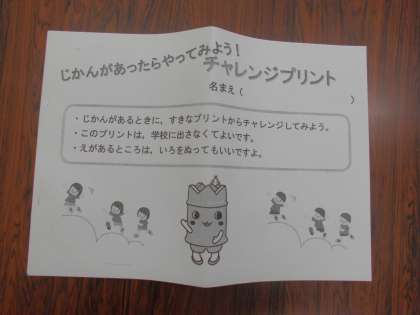 じかんがあったらやってみよう!
チャレンジプリント
名まえ( )
・じかんがあるときに、すきなプリントからチャレンジしてみよう。
・このプリントは、学校に出さなくてよいです。
・えがあるところは、いろをぬってもいいですよ。